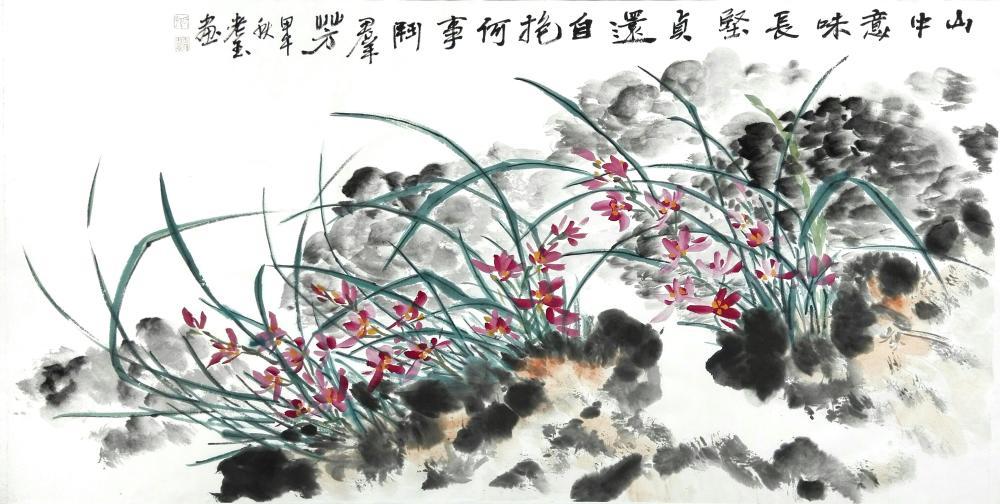 山中意味長堅貞還自抱何事鬥羣芳甲午秋畫